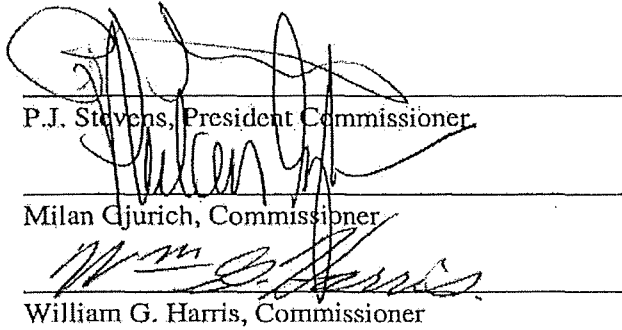 P.J. Stevens, President Commissioner
Milan
Milan Gjurich, Commissioner
Wm G. Harris
William G. Harris, Commissioner